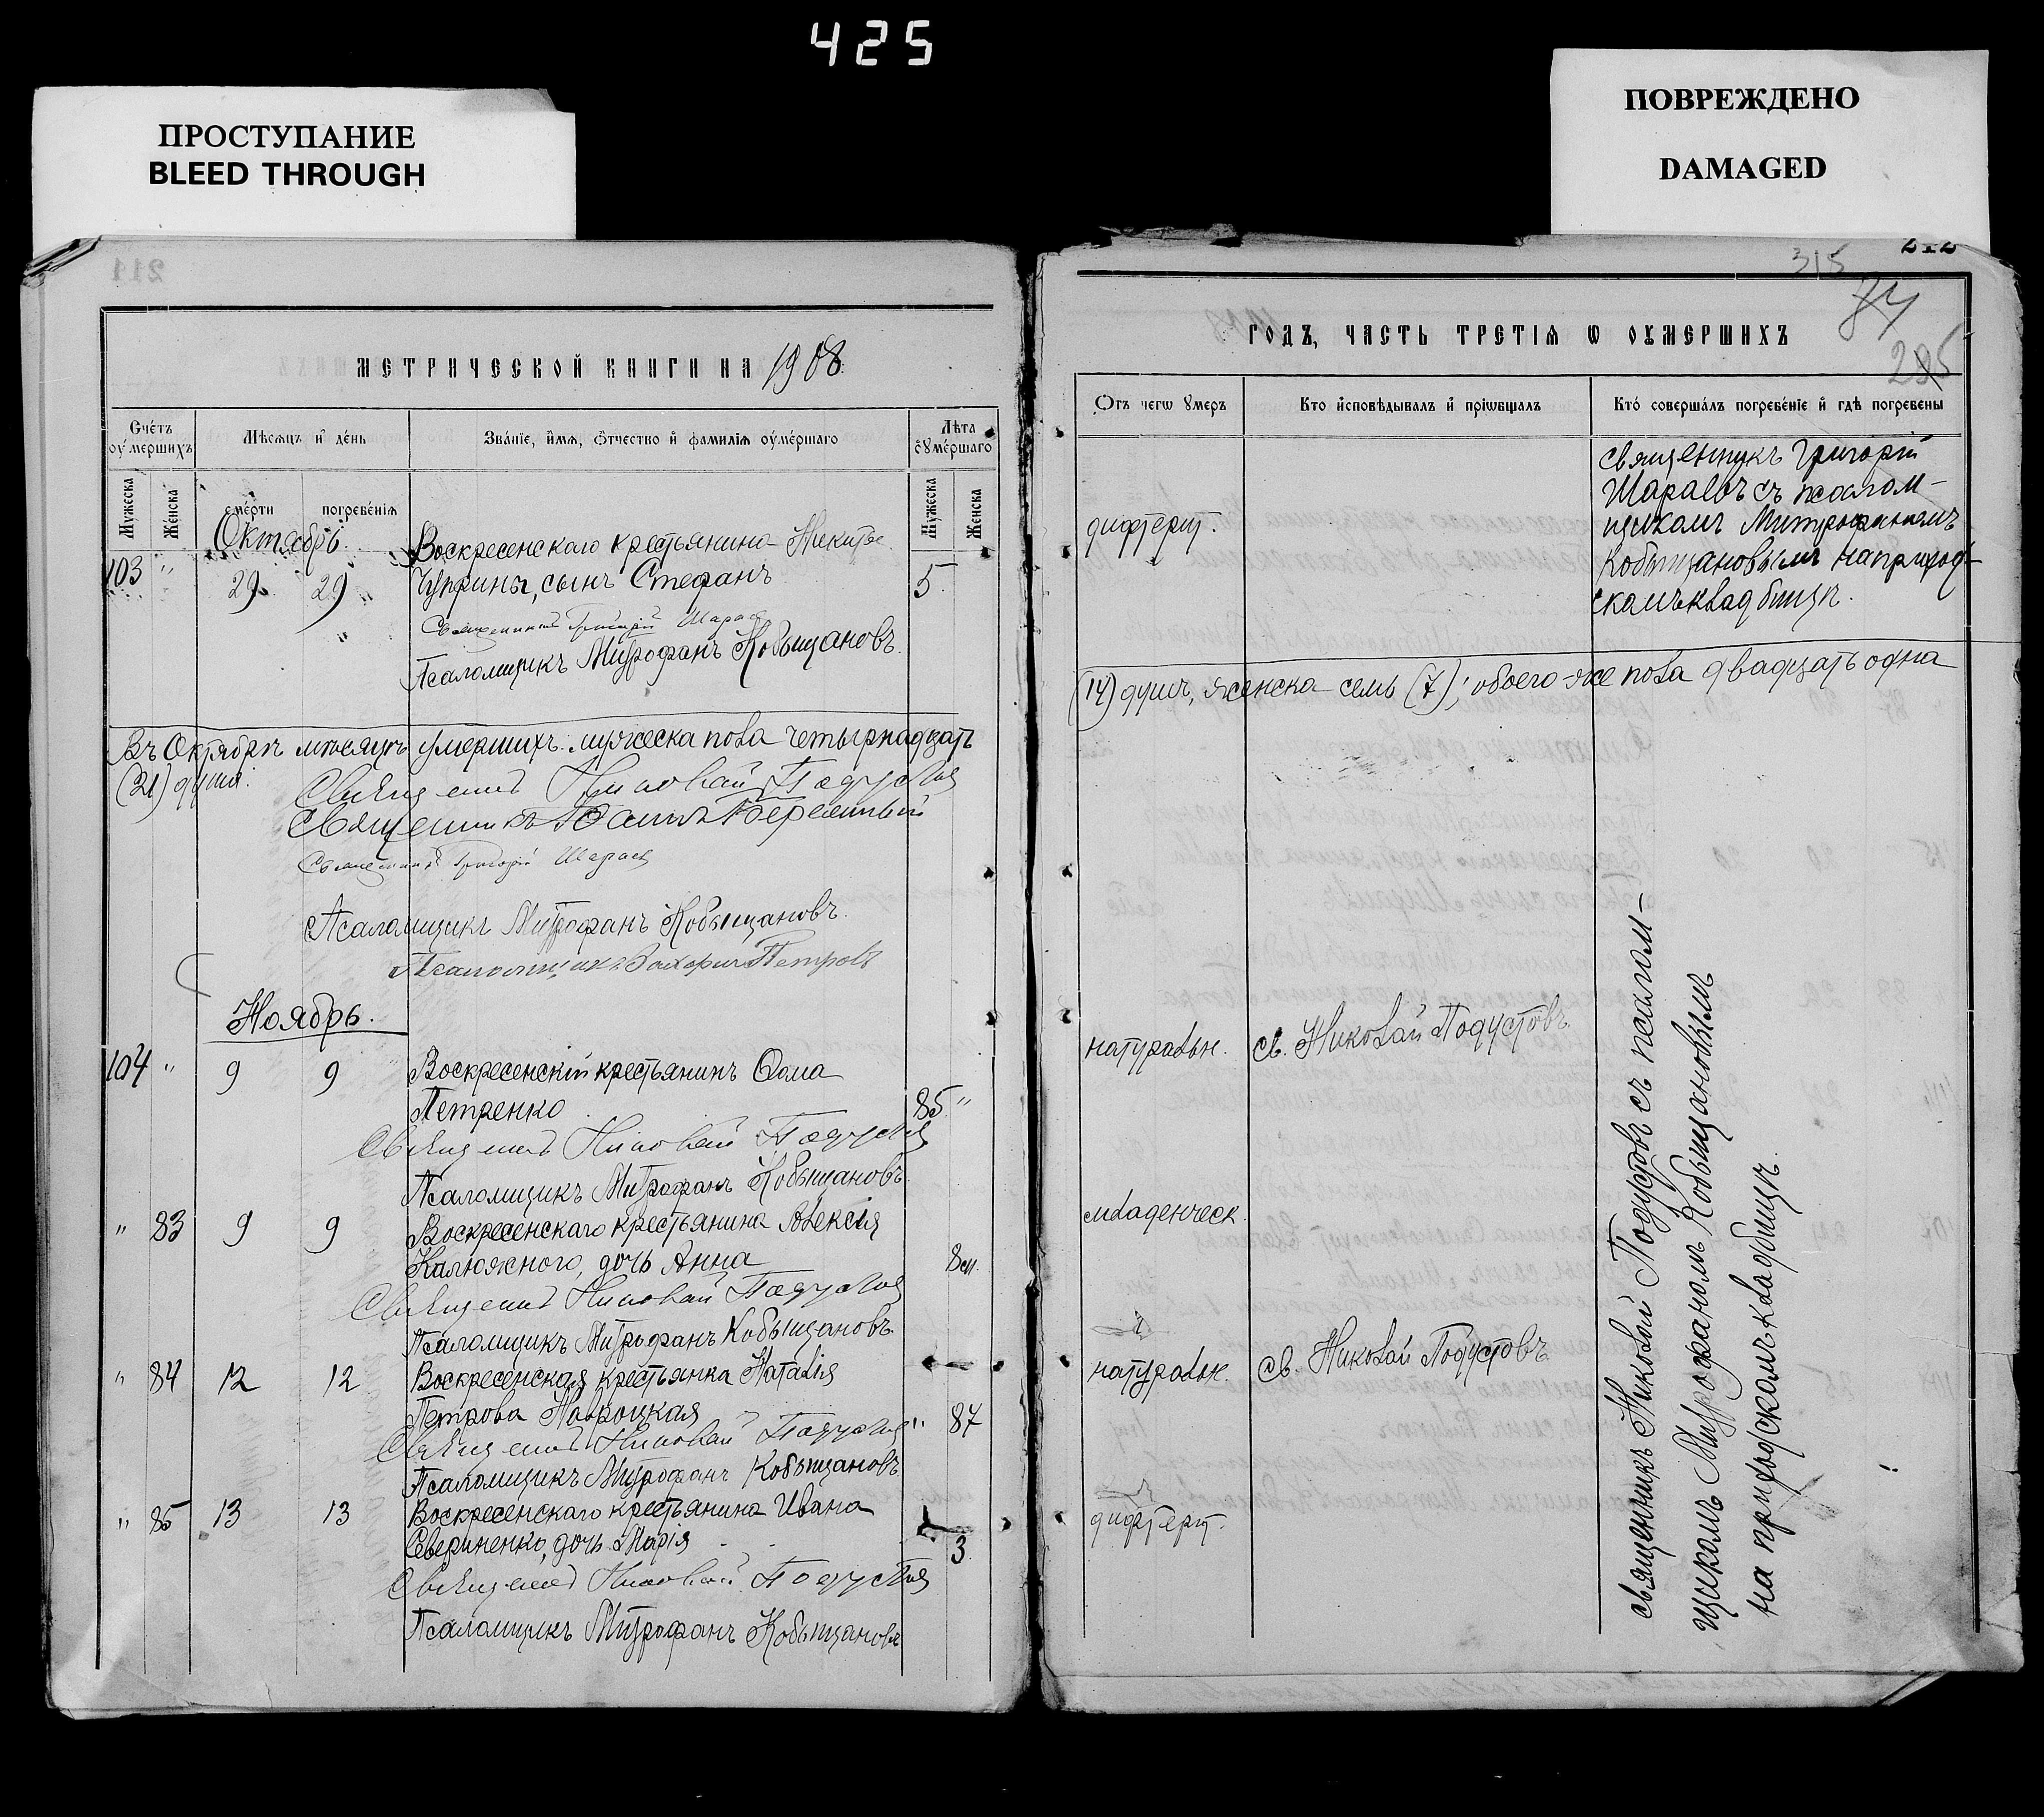 425
ПРОСТУПАНИЕ
BLEED THROUGH
ПОВРЕЖДЕНО
DAMAGED
211
МЕТРИЧЕСКОЙ КНИГИ НА 1908
Счетъ оумершихъ
Мѣсяцъ и день
Званіе, имя, отчество и фамилія оумершаго
Лѣта оумершаго
Мужеска
Женска
смерти
погребенія
Мужеска
Женска
Октябрь
103 " 29 29 Воскресенскаго крестьянина Никиты
Чуприны, сынъ Стефанъ 5
Священникъ Григорій Шараевъ
Псаломщикъ Митрофанъ Кобыщановъ.
Въ Октябрѣ мѣсяцѣ умершихъ: мужеска пола четырнадцать
(21) душа.
Священникъ Николай Подустовъ
Священникъ
Священникъ Григорій Шараевъ
Псаломщикъ Митрофанъ Кобыщановъ.
Псаломщикъ Петровъ
Ноябрь.
104 " 9 9 Воскресенскій крестьянинъ Ѳома
Петренко 85 "
Священникъ Николай Подустовъ
Псаломщикъ Митрофанъ Кобыщановъ.
" 83 9 9 Воскресенскаго крестьянина Алексія
Калюжного, дочь Анна 8 м.
Священникъ Николай Подустовъ
Псаломщикъ Митрофанъ Кобыщановъ.
" 84 12 12 Воскресенская крестьянка Наталія
Петрова Навроцкая " 87
Священникъ Николай Подустовъ
Псаломщикъ Митрофанъ Кобыщановъ
" 85 13 13 Воскресенскаго крестьянина Ивана
Севериненко, дочь Марія 3.
Священникъ Николай Подустовъ
Псаломщикъ Митрофанъ Кобыщановъ
315
212
84
ГОДЪ, ЧАСТЬ ТРЕТІЯ Ѡ ОУМЕРШИХЪ
Отъ чегѡ умеръ
Кто исповѣдывалъ и пріѡбщалъ
Кто совершалъ погребеніе и гдѣ погребены
дифтерит.
священникъ Григорій
Шараевъ съ псалом-
щикомъ Митрофаномъ
Кобыщановымъ на приход-
скомъ кладбищѣ.
(14) душъ, женска - семь (7); обоего-же пола двадцать одна
натуральн. св. Николай Подустовъ.
младенческ.
натуральн. св. Николай Подустовъ.
дифтерит.
священникъ Николай Подустовъ съ псалом-
щикомъ Митрофаномъ Кобыщановымъ
на приходскомъ кладбищѣ.